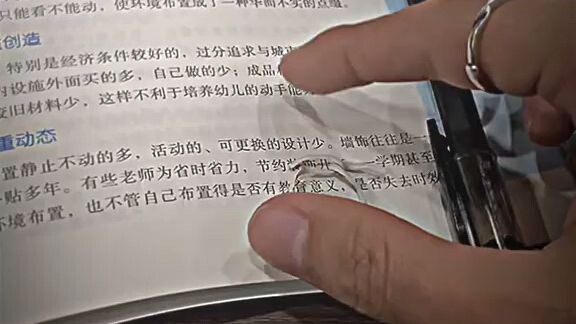 只能看不能动，使环境布置成了一种华而不实的点缀
创造
特别是经济条件较好的，过分追求与城市
内设施外面买的多，自己做的少；成品
废旧材料少，这样不利于培养幼儿的动手能
重动态
置静止不动的多，活动的、可更换的设计少。墙饰往往是一
贴多年。有些老师为省时省力，节约 一学期甚至
环境布置，也不管自己布置得是否有教育意义，是否失去时效